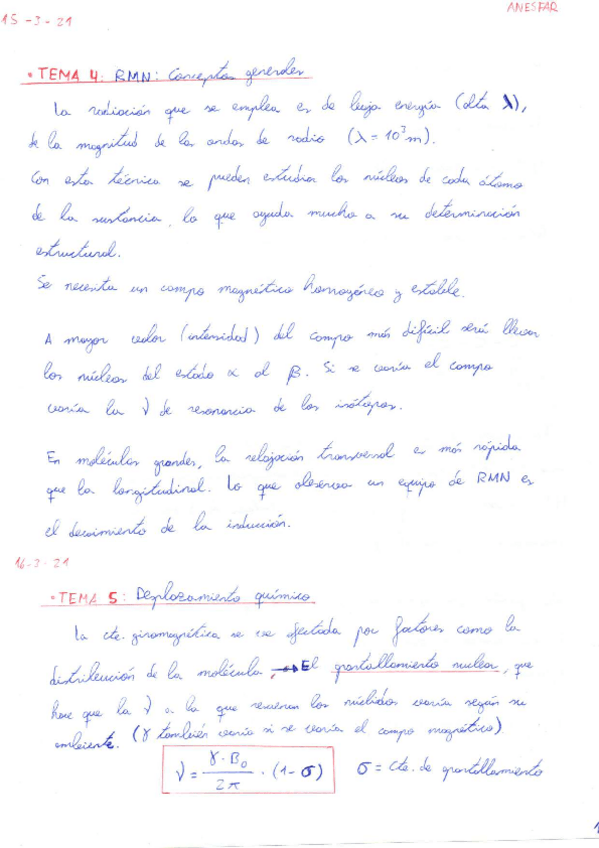 15-3-21
ANESFAR
• TEMA 4: RMN: Conceptos generales
La radiación que se emplea es de baja energía (alta λ),
de la magnitud de las ondas de radio (λ = 10³m).
Con esta técnica se pueden estudiar los núcleos de cada átomo
de la sustancia, lo que ayuda mucho a su determinación
estructural.
Se necesita un campo magnético homogéneo y estable.
A mayor valor (intensidad) del campo más difícil será llevar
los núcleos del estado α al β. Si se varía el campo
varía la ν de resonancia de los isótopos.
En moléculas grandes, la relajación transversal es más rápida
que la longitudinal. Lo que observa un equipo de RMN es
el decaimiento de la inducción.
16-3-21
• TEMA 5: Desplazamiento químico
La cte. giromagnética se ve afectada por factores como la
distribución de la molécula, El apantallamiento nuclear, que
hace que la ν a la que resuenan los núclidos varía según su
ambiente. (γ también varía si se varía el campo magnético)
ν = γ · B₀ / 2π · (1 - σ) σ = cte. de apantallamiento
1